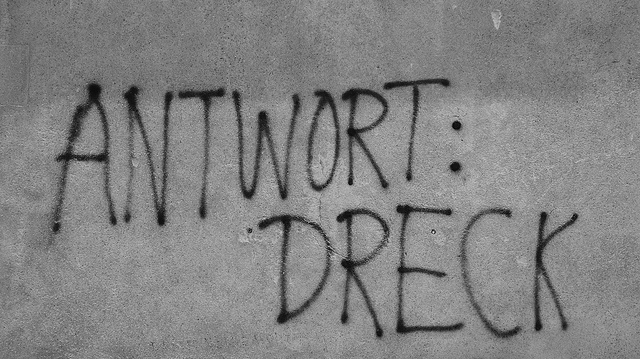 ANTWORT:
DRECK